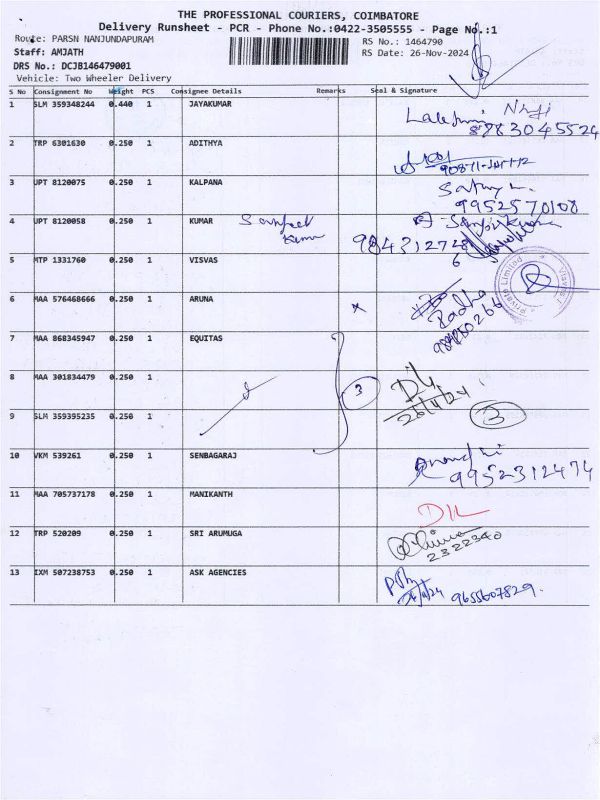 THE PROFESSIONAL COURIERS, COIMBATORE
Delivery Runsheet - PCR - Phone No.:0422-3505555 - Page No.:1
Route: PARSN NANJUNDAPURAM
RS No.: 1464790
Staff: AMJATH
RS Date: 26-Nov-2024
DRS No.: DCJB146479001
Vehicle: Two Wheeler Delivery
S No Consignment No Weight PCS Consignee Details Remarks Seal & Signature
1 SLM 359348244 0.440 1 JAYAKUMAR
8883045524
2 TRP 6301630 0.250 1 ADITHYA
3 UPT 8120075 0.250 1 KALPANA
9952570108
4 UPT 8120058 0.250 1 KUMAR
5 MTP 1331760 0.250 1 VISVAS
Private Limited
6 MAA 576468666 0.250 1 ARUNA
Radha
7 MAA 868345947 0.250 1 EQUITAS
8 MAA 301834479 0.250 1 3
3
9 SLM 359395235 0.250 1
10 VKM 539261 0.250 1 SENBAGARAJ
9952312474
11 MAA 705737178 0.250 1 MANIKANTH
12 TRP 520209 0.250 1 SRI ARUMUGA
2322340
13 IXM 507238753 0.250 1 ASK AGENCIES
9655607829.